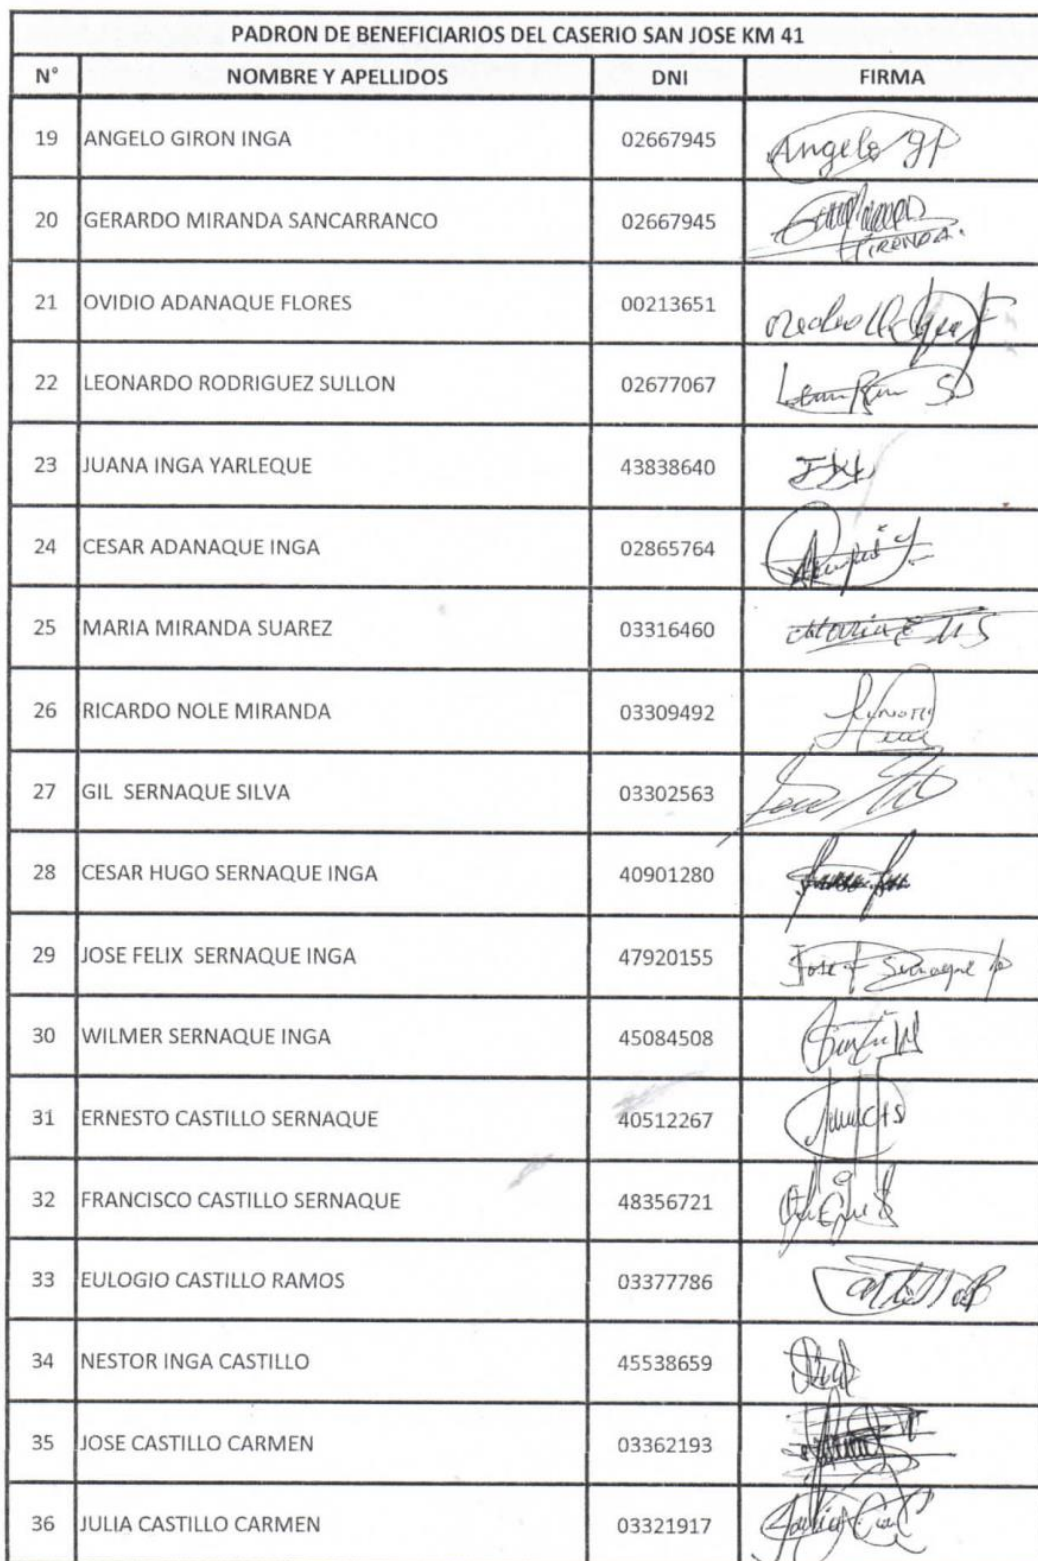 PADRON DE BENEFICIARIOS DEL CASERIO SAN JOSE KM 41
N° NOMBRE Y APELLIDOS DNI FIRMA
19 ANGELO GIRON INGA 02667945 Angelo
20 GERARDO MIRANDA SANCARRANCO 02667945
21 OVIDIO ADANAQUE FLORES 00213651
22 LEONARDO RODRIGUEZ SULLON 02677067
23 JUANA INGA YARLEQUE 43838640
24 CESAR ADANAQUE INGA 02865764
25 MARIA MIRANDA SUAREZ 03316460 Maria
26 RICARDO NOLE MIRANDA 03309492
27 GIL SERNAQUE SILVA 03302563
28 CESAR HUGO SERNAQUE INGA 40901280
29 JOSE FELIX SERNAQUE INGA 47920155 Jose F Sernaque
30 WILMER SERNAQUE INGA 45084508
31 ERNESTO CASTILLO SERNAQUE 40512267
32 FRANCISCO CASTILLO SERNAQUE 48356721
33 EULOGIO CASTILLO RAMOS 03377786
34 NESTOR INGA CASTILLO 45538659
35 JOSE CASTILLO CARMEN 03362193
36 JULIA CASTILLO CARMEN 03321917